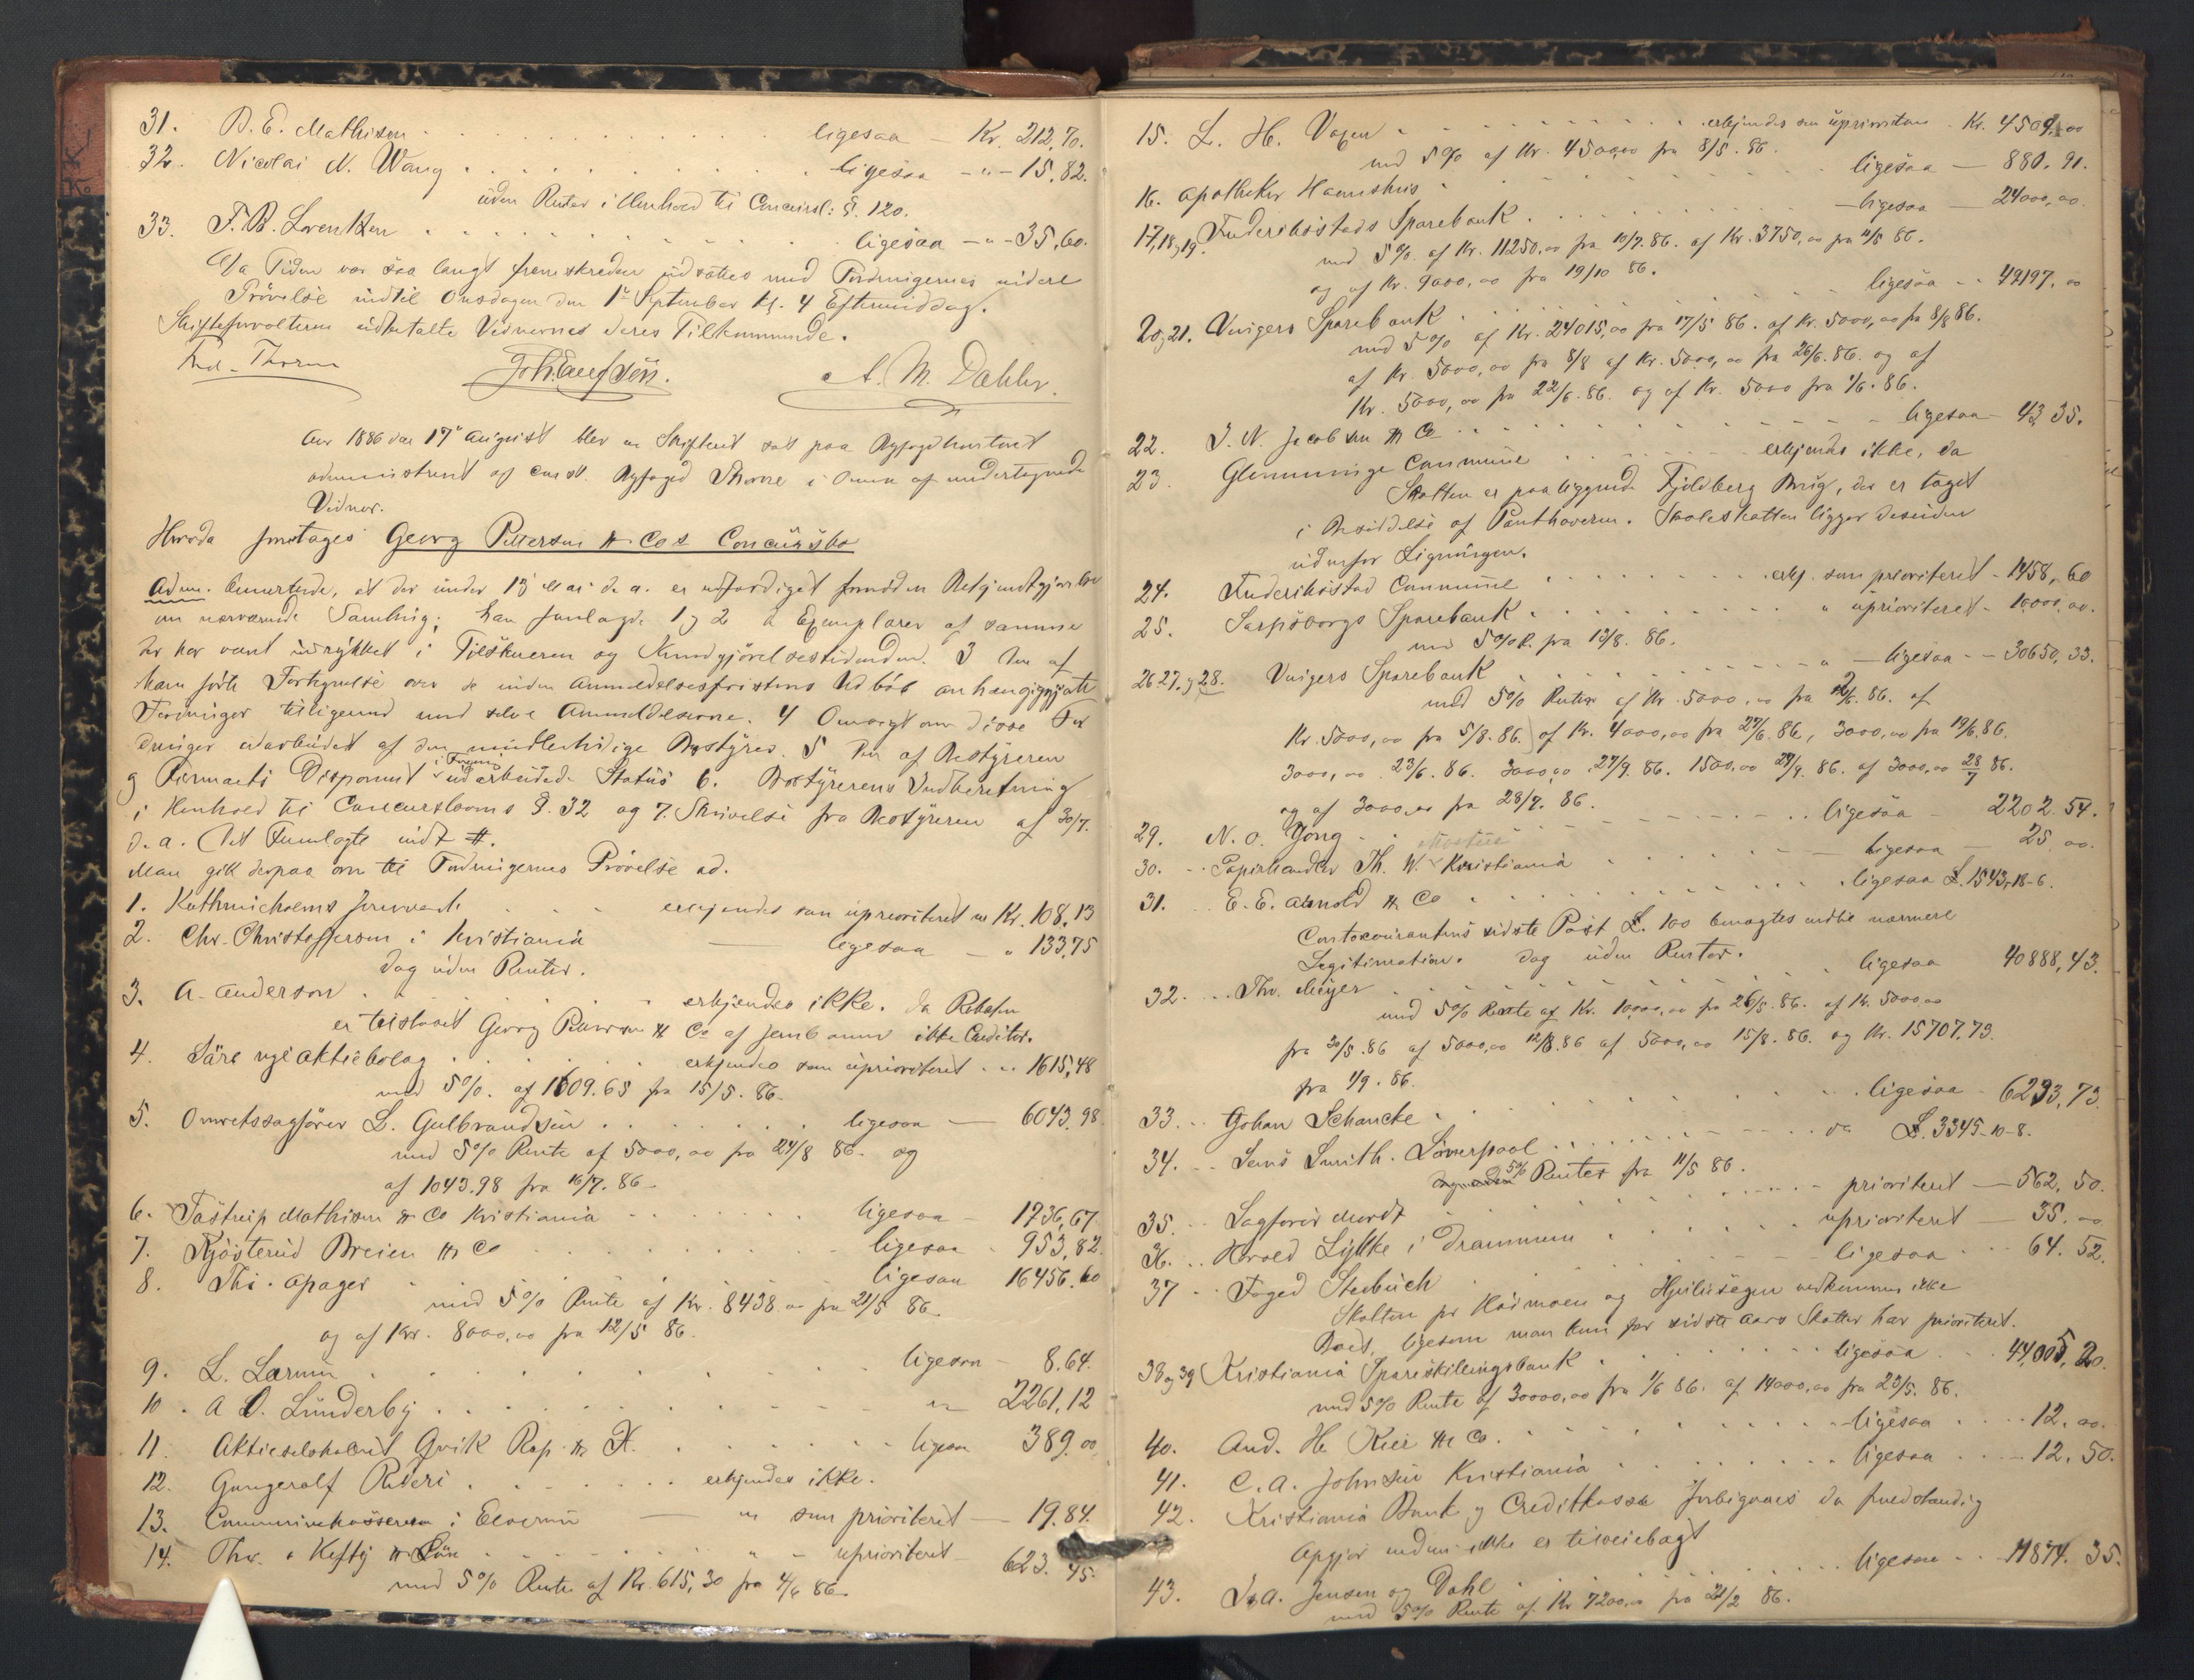 31. D. E. Mathisen . . . . ligesaa — Kr. 212,70.
32. Nicolai N. Wang . . . . ligesaa - „ - 15,82.
uden Renter i Henhold til Concursl: §. 120.
33. F. B. Lorentzen . . . . ligesaa - „ - 35,60.
Da Tiden var saa langt fremskreden udsattes med Fordringernes videre
Prövelse indtil Onsdagen den 1ste September Kl. 4 Eftermiddag.
Skifteforvalteren udbetalte Vidnerne deres Tilkommende.
A. M. Dahler.
Aar 1886 den 17de August blev en Skifteret sat paa Byfogedkontoret
administreret af const. Byfoged Thorne i Overv. af undertegnede
Vidner.
Hvorda foretages Georg Pettersen & Co s Concursbo
Adm. bemærkede, at der under 13 Mai d. a. er udfærdiget fornöden Bekjendtgjörelse
om nærværende Samling; han fremlagde 1 og 2 Exemplarer af samme
der har været indrykket i Tilskueren og Kundgjörelsestidenden. 3 Den af
ham förte Fortegnelse over de inden Anmeldelsesfristens Udlöb anhængiggjorte
Fordringer tilligemed med selve Anmeldelserne. 4 Oversigt over disse For
dringer udarbeidet af den midlertidige Bestyrer. 5 Den af Bestyreren
og Firmaets Disponent udarbeidede Status 6. Bestyrerens Indberetning
i Henhold til Concurslovens §. 32 og 7. Skrivelse fra Bestyreren af 30/7.
d. a. Det Fremlagte indt. #.
Man gik derpaa over til Fordringernes Prövelse ad.
1. Kathrineholms Jernværk . . . erkjendes som uprioriteret Kr. 108,13
2. Chr. Christoffersen i Kristiania — ligesaa — „ 133,75
dog uden Renter.
3. A. Anderson . . . . erkjendes ikke. da
er tilstaaet Georg Pettersen & Co af ikke Creditor.
4. aktiebolag . . . . erkjendes som uprioriteret . „ 1615,48
med 5%. af 1609.65 fra 15/5. 86.
5. Overretssagförer L. Gulbrandsen . . . . ligesaa — 6043.98
med 5% Rente af 5000,00 fra 24/8 86. og
af 1043.98 fra 16/7. 86.
6. Tostrup Mathisen & Co Kristiania . . . . ligesaa — 1736,67.
7. Kjösterud Breien & Co . . . . ligesaa . 953,82.
8. Th. Apager . . . . ligesaa 16456.60
med 5% Rente af Kr. 8438.00 fra 21/5 86.
og af Kr. 8000,00 fra 12/5 86.
9. L. Larsen . . . . ligesaa — 8.64.
10. A O. Lunderby . . . . „ 2261,12
11. Aktieselskabet Gjvik Rap. & K. . . . . ligesaa 389.00
12. Rideri . . . . erkjendes ikke.
13. Communekassereren i Elverum — „ som prioriteret — 19.84.
14. Thr. Kefty & Sön . . . . uprioriteret — 623.45.
med 5% Rente af Kr. 615,30 fra 4/6 86.
15. L. H. Vogen . . . . erkjendes som uprioriteret . Kr. 4504,00
med 5% af Kr. 4500,00 fra 8/5. 86.
16. Apotheker Haneshus . . . . ligesaa — 880.91.
17, 18 og 19. Frederiksstads Sparebank . . . . ligesaa — 24000,00.
med 5%. af Kr. 11250,00 fra 10/7. 86. af Kr. 3750,00 fra 11/5 86.
og af Kr. 9000,00 fra 19/10 86.
20 og 21. Vingers Sparebank . . . . ligesaa - - 49197.00
med 5% af Kr. 24015,00 fra 17/5 86. af Kr. 5000,00 fra 8/8 86.
af Kr. 5000,00 fra 8/8 af Kr. 5000,00 fra 26/6. 86. og af
Kr. 5000,00 fra 22/6. 86. og af Kr. 5000 fra 1/6. 86.
22. J. N. Jacobsen & Co . . . . ligesaa — 43,35.
23. Glemminge Commune . . . . erkjendes ikke, da
Skatten er paaliggende Fjeldberg Brug, der er taget
i Besiddelse af Panthaveren. Skoleskatten ligger desuden
udenfor Ligningen.
24. Frederiksstad Commune . . . . erkj. som prioriteret - 1458,60
25. Sarpsborgs Sparebank . . . . „ uprioriteret - 10,000,00.
med 5% R. fra 13/8. 86.
26. 27. og 28. Vingers Sparebank . . . . „ — ligesaa - - 30650,33.
med 5% Renter af Kr. 5000,00 fra 12/6. 86. af
Kr. 5000,00 fra 5/8. 86. af Kr. 4000,00 fra 27/6. 86, 3000,00 fra 19/6. 86.
3000,00 23/6. 86. 3000,00 27/9. 86. 1500,00 24/9. 86. af 3000,00 28/7 86.
og af 3000,00 fra 28/7. 86.
29. N. O. Yong . . . . ligesaa — 2202.54.
30. Papirhandler Th. W. Kristiania . . . . ligesaa — 25,00.
31. E. E. Arnold & Co . . . . ligesaa £. 1543-18-6.
Contocourantens sidste Post £. 100 benægtes indtil nærmere
Legitimation. dog uden Renter.
32. Thv. Meyer . . . . ligesaa 40888,43.
med 5% Rente af Kr. 10,000,00 fra 26/5. 86. af Kr. 5000,00
fra 30/5. 86 af 5000,00 12/8. 86 af 5000,00 15/8. 86. og Kr. 15707,73.
fra 1/9. 86.
33. Johan Schancke . . . . ligesaa . 6293,73.
34. Lewis Smith. Liverpool . . . . da £. 3345-10-8.
5% Renter fra 11/5 86.
35. Sagförer Mordt . . . . prioriteret — 562,50.
36. Harald Lykke i Drammen . . . . uprioriteret — 35.00
37. Foged Steibuch . . . . ligesaa . . 64.52.
Skatten pr og vedkommer ikke
Boet, ligesom man kun for sidste Aars Skatter har prioriteret.
38 og 39 Kristiania Spareskillingsbank . . . . ligesaa . . 44,005,20.
med 5% Rente af 30000,00 fra 1/6 86. af 14000,00 fra 23/5. 86.
40. And. H. Kiær & Co. . . . . ligesaa . . 12.00.
41. C. A. Johnsen Kristiania . . . . ligesaa . . 12.50.
42. Kristiania Bank og Creditkasse forbigaaes da fuldstændig
Opgjör endnu ikke er tilveiebragt
43. A. Jensen og Dahl . . . . ligesaa . . 11874.35.
med 5% Rente af Kr 7200,00 fra 21/2 86.